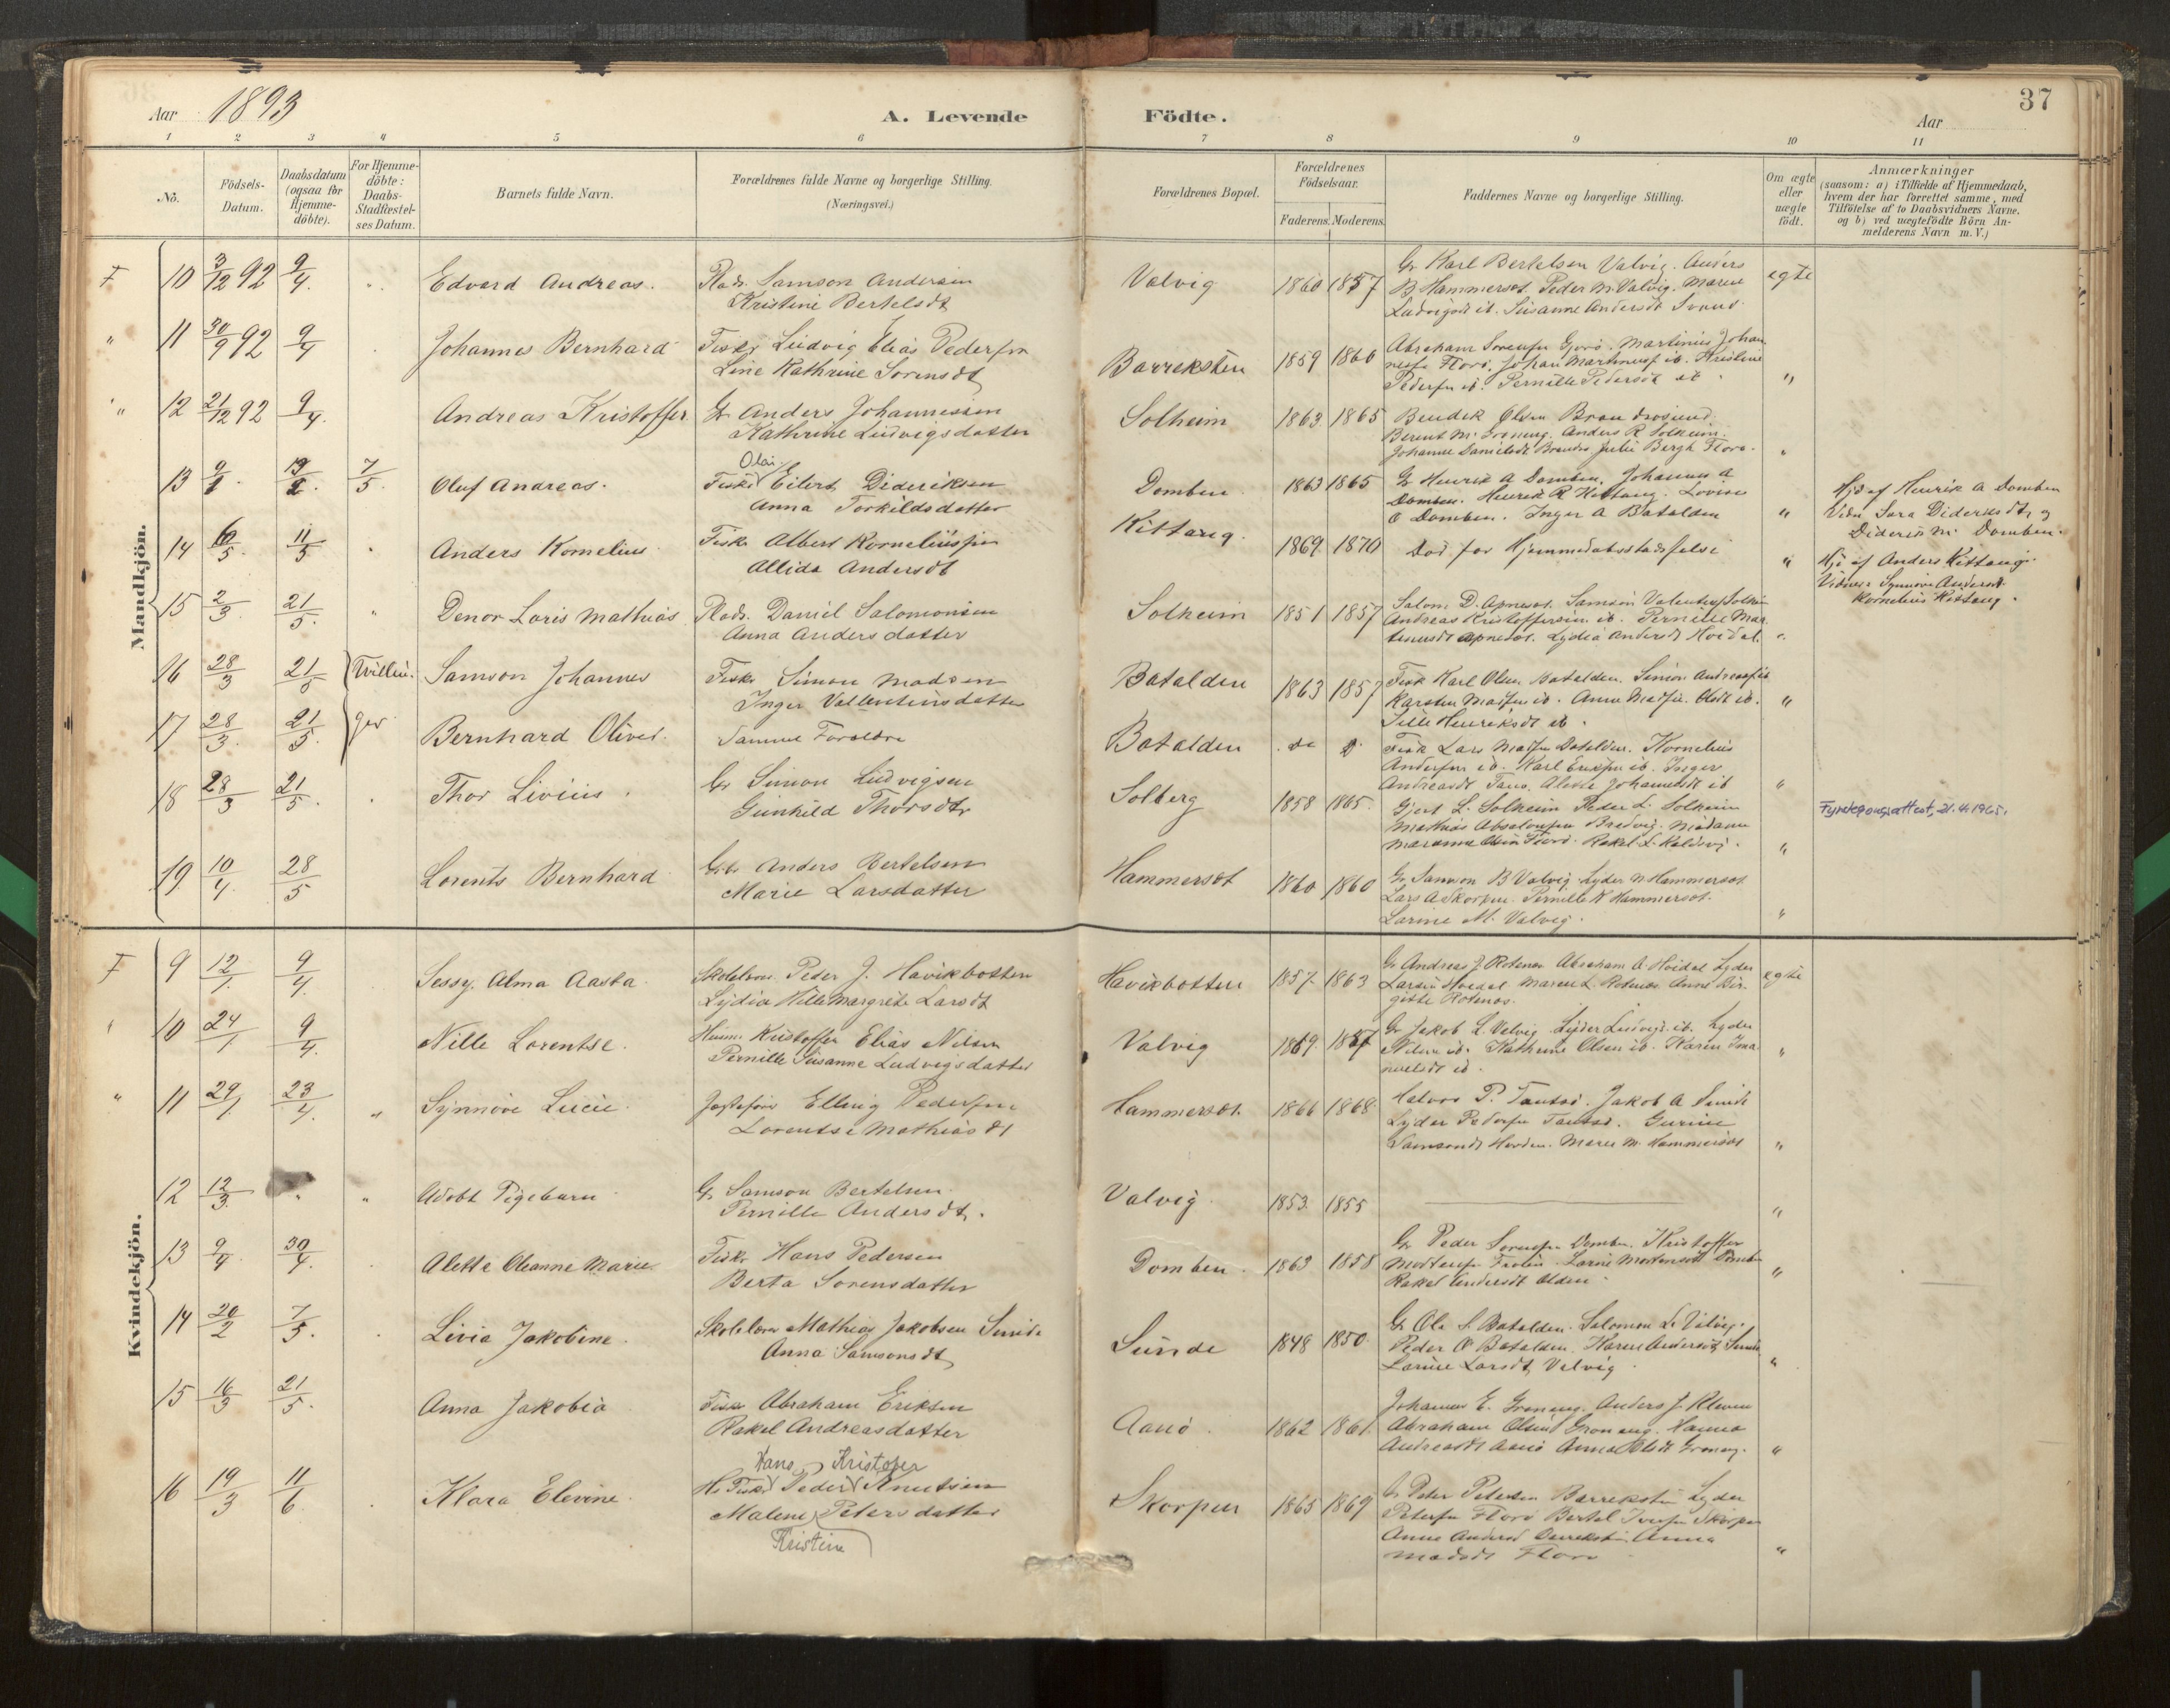 37
Aar 1893
A. Levende Födte.
Aar
1 2 3 4 5 6 7 8 9 10 11
No.
Födsels-Datum.
Daabsdatum (ogsaa for Hjemmedöbte).
For Hjemmedöbte: Daabs-Stadfæstelses Datum.
Barnets fulde Navn.
Forældrenes fulde Navne og borgerlige Stilling.
(Næringsvei.)
Forældrenes Bopæl.
Forældrenes Födselsaar.
Faderens. Moderens.
Faddernes Navne og borgerlige Stilling.
Om ægte eller uægte födt.
Anmærkninger
(saasom: a) i Tilfælde af Hjemmedaab,
hvem der har forrettet samme, med
Tilföielse af to Daabsvidners Navne.
og b) ved uægtefödte Börn An-
melderens Navn m. V.)
Mandkjön.
F 10 3/12 92 9/4 Edvard Andreas. Plads. Samson Andersen
Kristine Bertelsdt
Valvig 1860 1857
Gr Karl Bertelsen Valvig. Anders
B Hammersøt Peder M. Valvig. Maren
Ludvigsdt ib. Susanne Andersdt
egte
" 11 30/9 92 9/4 Johannes Bernhard Fisker Ludvig Elias Pedersen
Line Kathrine Sorensdt
Barreksten 1859 1866
Abraham Sorensen Martinius Johan
nesen Florö. Johan ib. Kristine
Pedersen ib. Pernille Pedersdt ib "
" 12 21/12 92 9/4 Andreas Kristoffer Gr Anders Johannessen
Kathrine Ludvigsdatter
Solheim 1863 1865
Bendik Olsen
Berent M. Anders R Solheim.
Johanne Danielsdt Julie Bergh Florö. "
13 7/5 Oluf Andreas. Olai
Fisker Eilert Dideriksen
Anna Torkildsdatter
Domben 1863 1865
Gr Henrik A Domben. Johannes A
Domben. Henrik R Kittang. Lovise
O Domben. Inger A Batalden "
Hjd af Henrik A Domben
Vidn Sara Dideriksdtr og
Diderik M. Domben.
14 11/5 Anders Kornelius Fisker Albert Korneliussen
Allida Andersdt
Kittang. 1869 1870 Död för Hjemmedaabsstadfestelse "
Hjd af Anders Kittang.
Vidner Synnöve Andersdt.
Kornelius Kittang.
15 2/3 21/5 " Denor Loris Mathias Plads. Daniel Salomonsen
Anna Andersdatter
Solheim 1851 1857
Salom. D. Samson
Andreas Kristoffersen ib. Pernille Mar
tinusdt Lydia Andersdt Hvidal. "
16 28/3 21/5 Tvillin- Samson Johannes Fisker Simon Madsen
Inger Vallentinsdatter
Batalden 1863 1857
Fisk Karl Olsen Batalden. Simon Andreas ib
Karsten Madsen ib. Anne ib.
Sille Henriksdt ib. "
17 28/3 21/5 ger Bernhard Oliver. Samme Foreldre
Batalden do do
Fisk Lars Batalden. Kornelius
Andersen ib. Karl ib. Inger
Andreasdt Alette Johannesdt ib "
18 28/3 21/5 Thor Livius. Gr Simon Ludvigsen
Gunhild Thorsdtr
Solberg 1858 1865
Gjert L. Solheim Peder L. Solheim
Mathias Absalonsen Bredvig.
Florö. Rakel L. "
21.4.1965.
19 10/4 28/5 Lorents Bernhard Gbr Anders Bertelsen
Marie Larsdatter
Hammersøt 1860 1860
Gr Samson B Valvig Lyder N Hammersøt
Lars A Skorpen. Pernille K Hammersøt.
Larine M. Valvig. "
Kvindekjön.
F 9 12/1 9/4 Sessy Alma Aasta. Peder J. Havikbotten
Lydia Margrete Larsdt
Havikbotten 1857 1863
Gr Andreas J Rotenes Abraham A Hvidal Lyder
Larsen Hvidal Maren L. Rotenes. Anne Bir-
gitte Rotenes. egte
" 10 24/1 9/4 Nille Lorentse. Kristoffer Elias Nilsen
Pernille Susanne Ludvigsdatter
Valvig 1869 1857
Gr Jakob L. Valvig Lyder Ludvigs ib. Lyder
Nilsen ib. Kathrine Olsen ib. Karen Ima-
nuelsdt ib. "
" 11 29/1 23/4 " Synnöve Lucie. Elling Pedersen
Lorentse Mathiasdt
Hammersøt. 1866 1868
Halvor P. Tansö. Jakob A Sunde
Lyder Pedersen Tansö. Gurine
Samsonsdt Maren M. Hammersøt "
12 12/3 " " Adøbt Pigebarn Gr Samson Bertelsen
Pernille Andersdt.
Valvig 1853 1855 "
13 9/4 30/4 Alette Oleanne Marie. Fisker Hans Pedersen
Berta Sorensdatter
Domben. 1863 1858
Gr Peder Sorensen Domben. Kristoffer
Larine Mortensdt Domben
Rakel Andersdt Olden. "
14 20/2 7/5 Livia Jakobine. Skolelærer Mathias Jakobsen Sunde
Anna Samsonsdt
Sunde 1848 1850
Gr Ole S. Batalden. Salomon L.
Peder O Batalden. Karen Andersdt Sunde
Larine Larsdt Valvig. "
15 16/3 21/5 Anna Jakobia Fisk Abraham Eriksen
Rakel Andreasdatter
Aanö. 1862 1861
Johannes E. Groneng. Anders J. Kleven
Abraham Groneng. Hanna
Andreasdt Aanö Anna Groneng. "
16 19/3 11/6 Klara Elevine. Hans Kristofer
Peder Knutsen
Malene Petersdatter
Kristine
Skorpen 1865 1869
Peter Petersen Barreksten Lyder
Petersen Florö Bertel Skorpen
Anne Andersd Barreksten Anna
Madsdt Florö. "